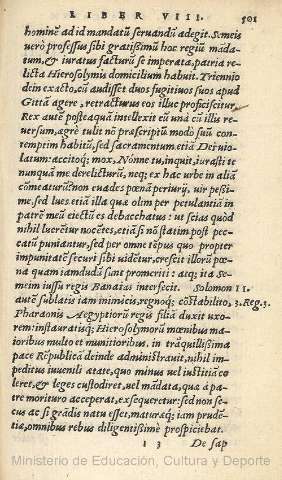 LIBER VIII. 501
hominẽ ad id mandatũ seruandũ adegit. Semeis
uerò professus sibi gratissimũ hoc regiũ mãda-
tum, & iuratus facturũ se imperata, patria re-
licta Hierosolymis domicilium habuit. Triennio
dein exacto, cũ audisset duos fugitiuos suos apud
Gittã agere, retracturus eos illuc proficiscitur.
Rex autẽ posteaquã intellexit eũ unà cũ illis re-
uersum, agrè tulit nõ præscriptũ modò suũ con-
temptim habitũ, sed sacramentum etiã Dei uio-
latum: accitoq; mox, Nónne tu, inquit, iurasti te
nunquã me derelicturũ, neq; ex hac urbe in aliã
cõmeaturũ? non euades pœnã periurij, uir peßi-
me. sed lues etiã illa quæ olim per petulantiã in
patrẽ meũ eiectũ es debacchatus: ut scias quòd
nihil lucrẽtur nocẽtes, etiã si nõ statim post pec-
catũ puniantur, sed per omne tẽpus quo propter
impunitatẽ securi sibi uidẽtur, crescit illorũ pœ-
na quam iamdudũ sunt promeriti: atq; ita Se-
meim iussu regis Banaias interfecit.
Solomon II.
autẽ sublatis iam inimicis, regnoq; cõstabilito,
3. Reg. 3.
Pharaonis Aegyptiorũ regis filiã duxit uxo-
rem: instaurataisq; Hierosolymorũ mœnibus ma-
ioribus multo et munitioribus. in trãquillißima
pace Rẽpublicã deinde administrauit, nihil im-
peditus iuuenili ætate, quo minus uel iustitiã co
leret, & leges custodiret, uel mãdata, quæ à pa-
tre morituro acceperat, exsequeretur: sed non se-
cus ac si grãdis natu esset, maturæq; iam prudẽ-
tiæ, omnibus rebus diligentißimè prospiciebat.
i 3 De sap
Ministerio de Educación, Cultura y Deporte